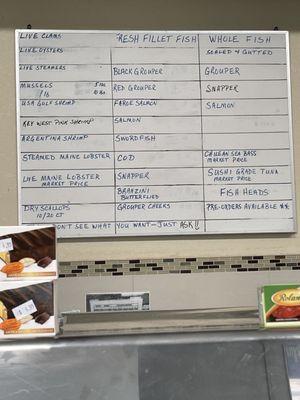 LIVE CLAMS
LIVE OYSTERS
LIVE STEAMERS
MUSSELS 5 LB.
1 LB 10 LBS.
USA GULF SHRIMP
KEY WEST PINK SHRIMP
ARGENTINA SHRIMP
STEAMED MAINE LOBSTER
LIVE MAINE LOBSTER
MARKET PRICE
DRY SCALLOPS
10/20 CT
FRESH FILLET FISH
BLACK GROUPER
RED GROUPER
FAROE SALMON
SALMON
SWORDFISH
COD
SNAPPER
BRANZINI
BUTTERFLIED
GROUPER CHEEKS
WHOLE FISH
SCALED & GUTTED
GROUPER
SNAPPER
SALMON
CHILEAN SEA BASS
MARKET PRICE
SUSHI GRADE TUNA
MARKET PRICE
FISH HEADS
PRE-ORDERS AVAILABLE
DON'T SEE WHAT YOU WANT—JUST ASK!!